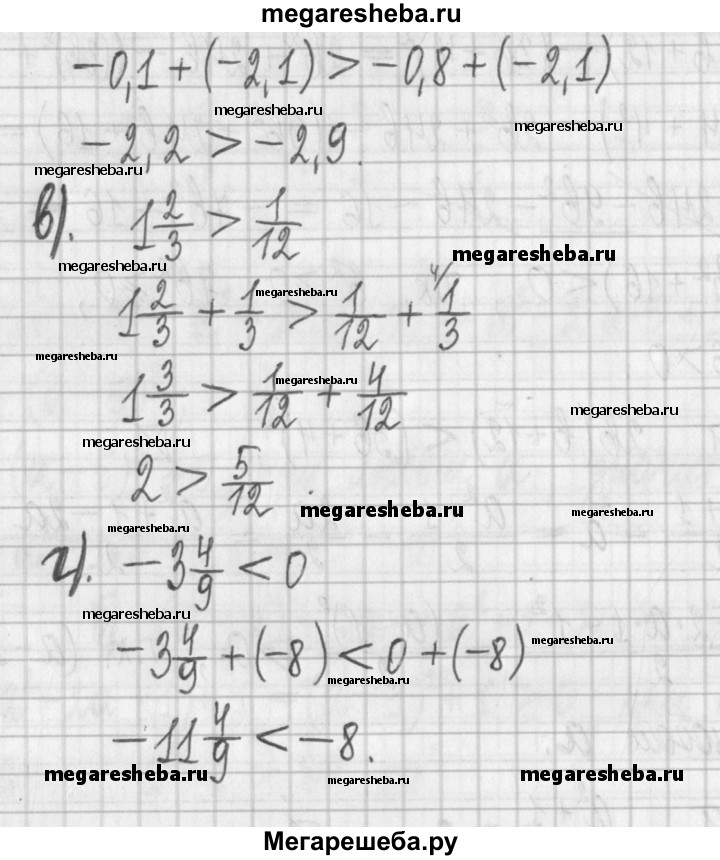 megaresheba.ru
-0,1 + (-2,1) > -0,8 + (-2,1)
megaresheba.ru
megaresheba.ru
-2,2 > -2,9.
megaresheba.ru
в). 1 2/3 > 1/12
megaresheba.ru
megaresheba.ru
megaresheba.ru
4/
1 2/3 + 1/3 > 1/12 + 1/3
megaresheba.ru
megaresheba.ru
1 3/3 > 1/12 + 4/12
megaresheba.ru
megaresheba.ru
2 > 5/12.
megaresheba.ru
megaresheba.ru
megaresheba.ru
г). -3 4/9 < 0
megaresheba.ru
megaresheba.ru
-3 4/9 + (-8) < 0 + (-8)
megaresheba.ru
-11 4/9 < -8.
megaresheba.ru
megaresheba.ru
megaresheba.ru
Мегарешеба.ру